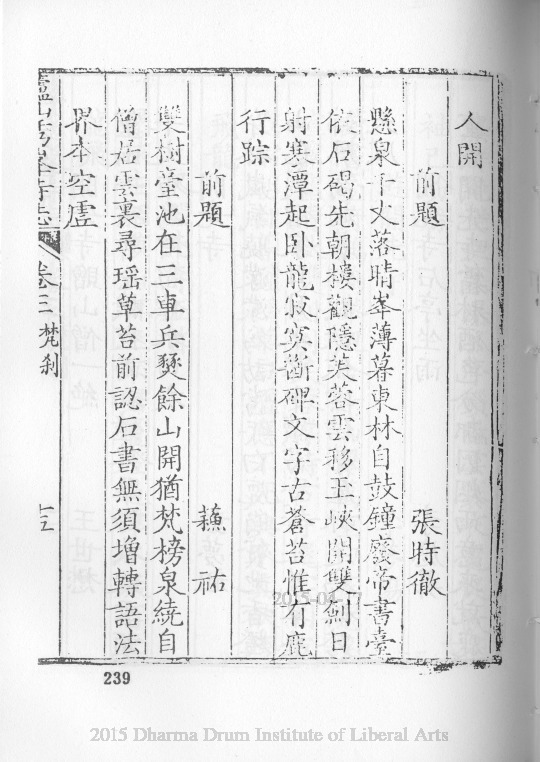 人開
前題 張時徹
懸泉千丈落晴峯薄暮東林自鼓鐘廢帝書臺
依石磵先朝樓觀隱芙蓉雲移玉峽開雙劍日
射寒潭起卧龍寂寞斷碑文字古蒼苔惟有鹿
行踪
前題 蘓祐
雙樹臺池在三車兵燹餘山開猶梵榜泉繞自
僧居雲裏尋瑶草苔前認石書無須増轉語法
界本空虛
廬山秀峰寺志 卷三 梵刹
239
2015-04-17
2015 Dharma Drum Institute of Liberal Arts